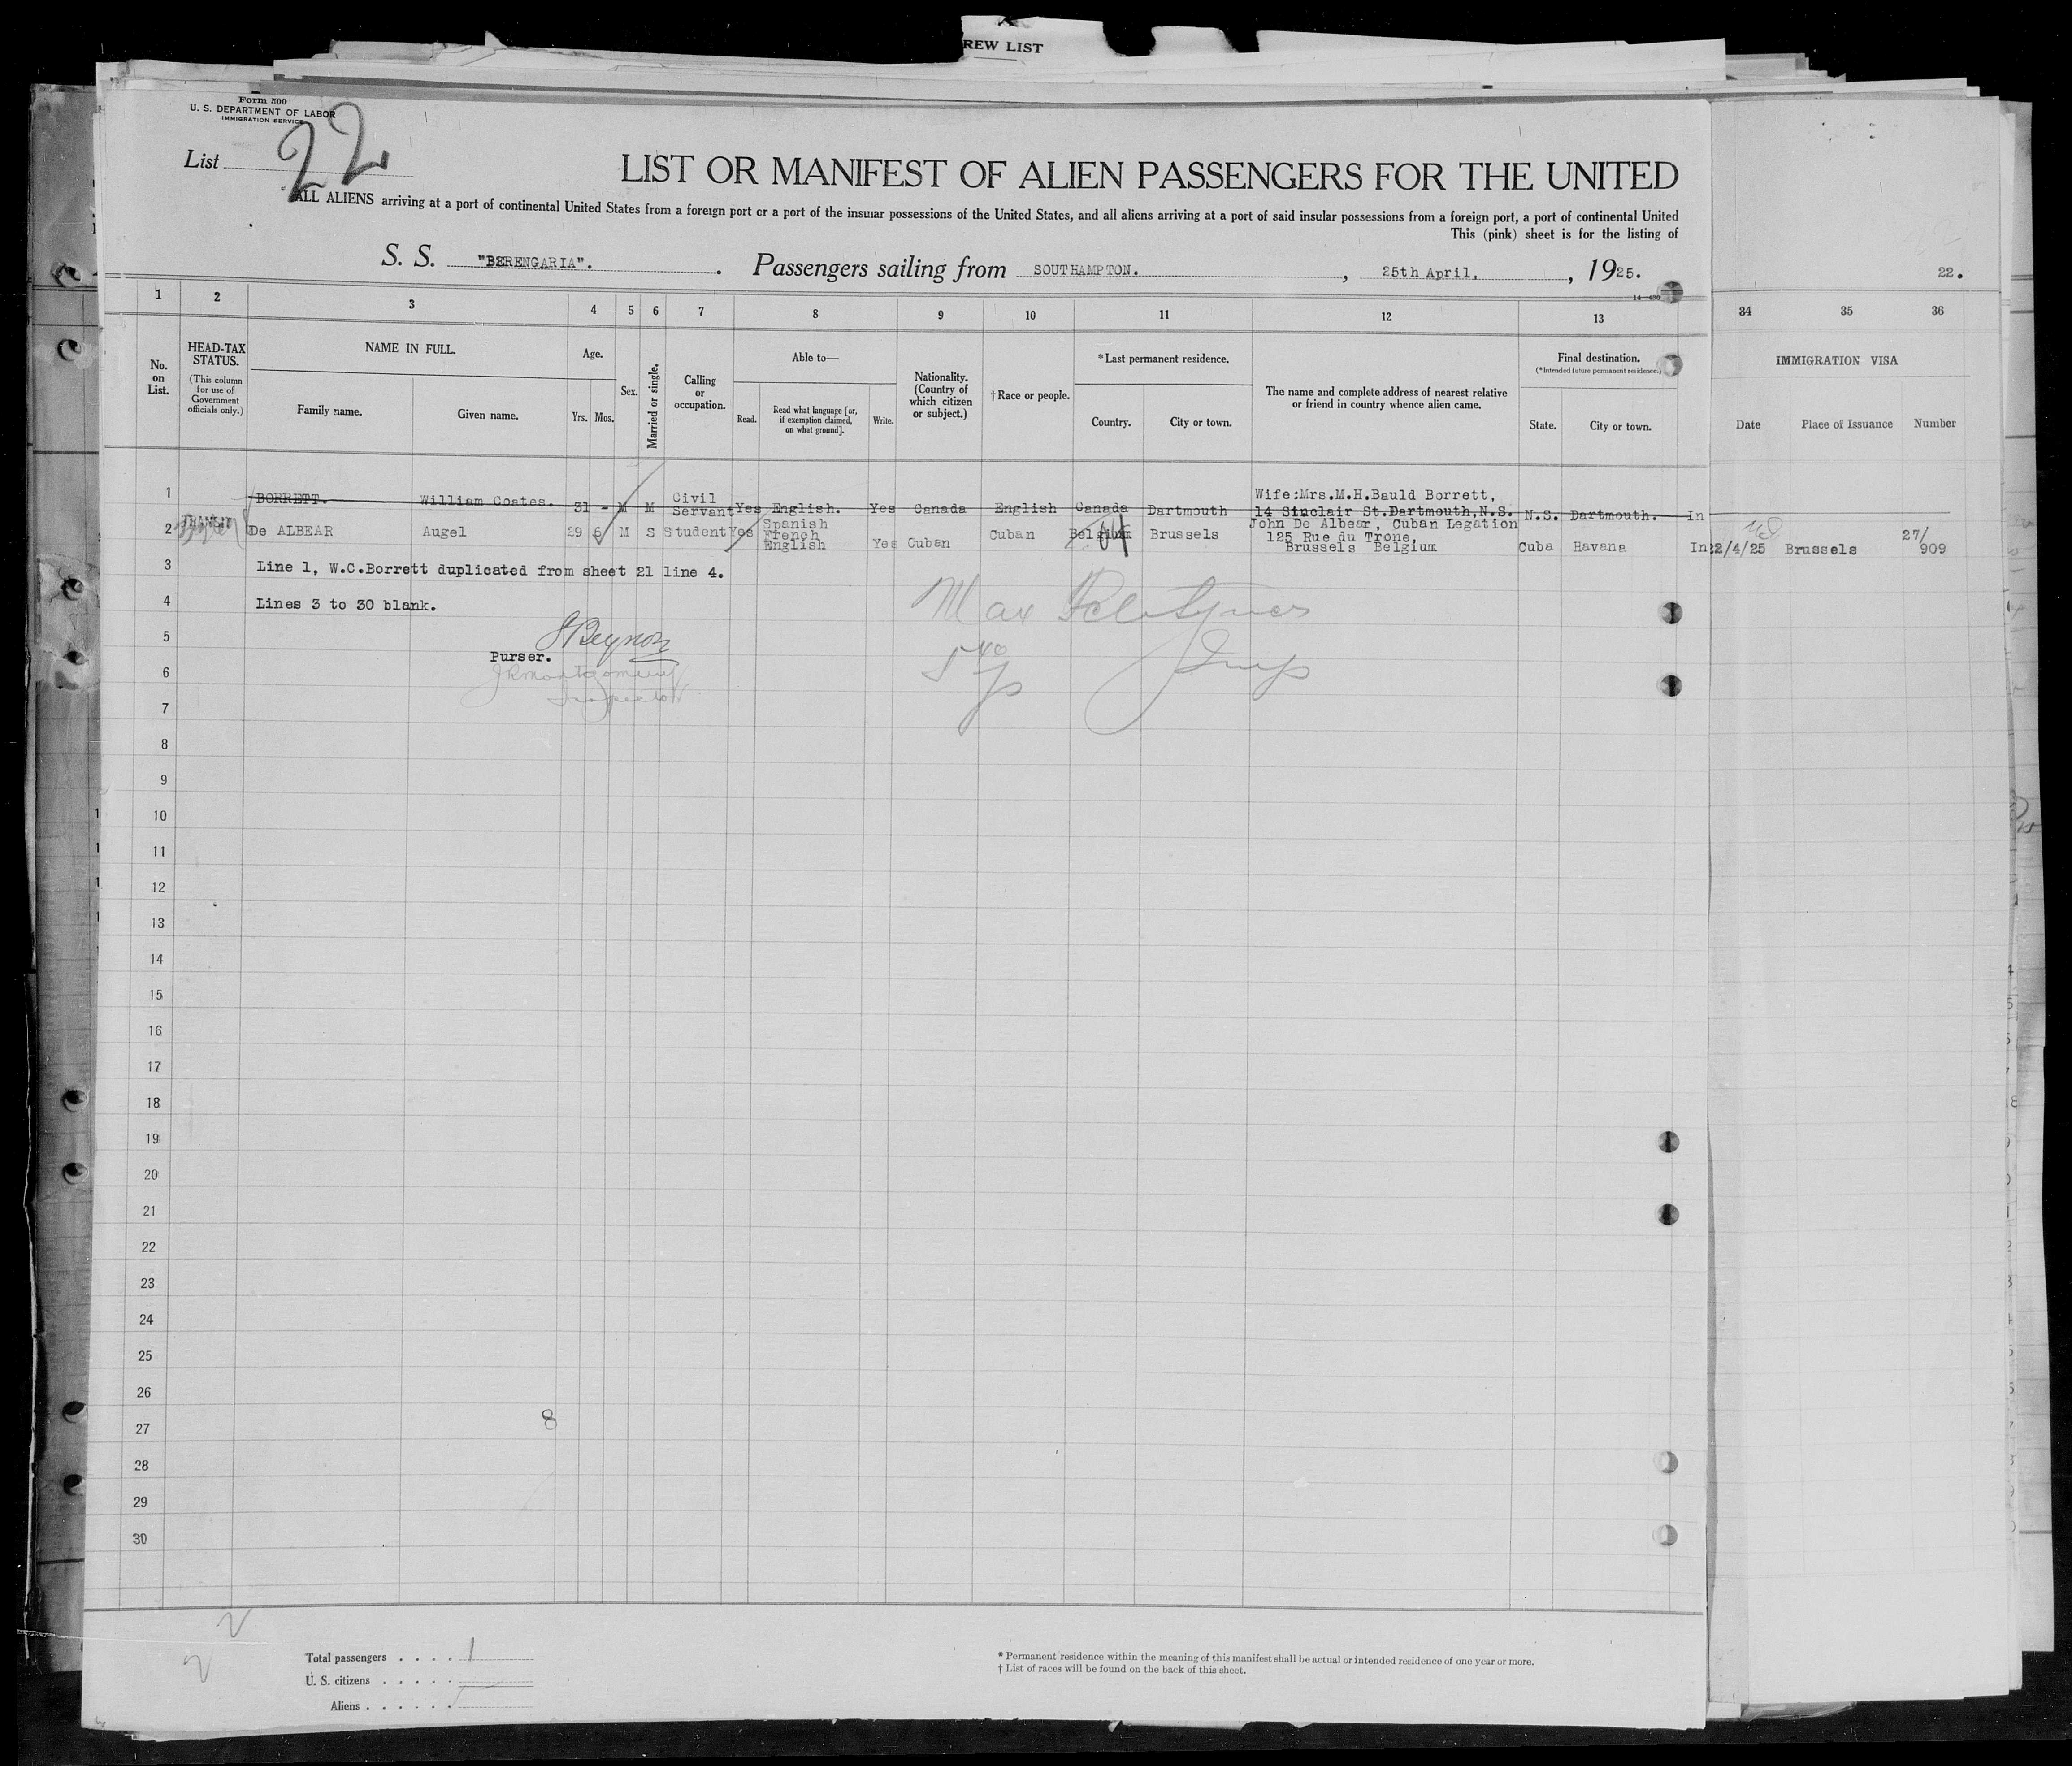 REW LIST
Form 500
U. S. DEPARTMENT OF LABOR
IMMIGRATION SERVICE
List 22
LIST OR MANIFEST OF ALIEN PASSENGERS FOR THE UNITED
ALL ALIENS arriving at a port of continental United States from a foreign port or a port of the insular possessions of the United States, and all aliens arriving at a port of said insular possessions from a foreign port, a port of continental United
This (pink) sheet is for the listing of
S. S. "BERENGARIA". Passengers sailing from SOUTHAMPTON. , 25th April. , 1925.
22.
1 2 3 4 5 6 7 8 9 10 11 12 13 34 35 36
No. on List.
HEAD-TAX STATUS.
(This column for use of Government officials only.)
NAME IN FULL.
Family name. Given name.
Age.
Yrs. Mos.
Sex.
Married or single.
Calling or occupation.
Able to—
Read. Read what language [or, if exemption claimed, on what ground]. Write.
Nationality. (Country of which citizen or subject.)
† Race or people.
* Last permanent residence.
Country. City or town.
The name and complete address of nearest relative or friend in country whence alien came.
Final destination.
(* Intended future permanent residence.)
State. City or town.
IMMIGRATION VISA
Date Place of Issuance Number
1 BORRETT. William Coates. 31 - M M Civil Servant Yes English. Yes Canada English Canada Dartmouth Wife:Mrs.M.H.Bauld Borrett, 14 Sinclair St.Dartmouth,N.S. N.S. Dartmouth. In
2 TRANSIT De ALBEAR Augel 29 6 M S Student Yes Spanish French English Yes Cuban Cuban Belgium Brussels John De Albear, Cuban Legation 125 Rue du Trone, Brussels Belgium Cuba Havana In 2/4/25 Brussels 27/ 909
3 Line 1, W.C.Borrett duplicated from sheet 21 line 4.
4 Lines 3 to 30 blank.
5
Purser.
6
Inspector
7
8
9
10
11
12
13
14
15
16
17
18
19
20
21
22
23
24
25
26
27 8
28
29
30
Total passengers . . . . 1
U. S. citizens . . . . .
Aliens . . . . . .
* Permanent residence within the meaning of this manifest shall be actual or intended residence of one year or more.
† List of races will be found on the back of this sheet.